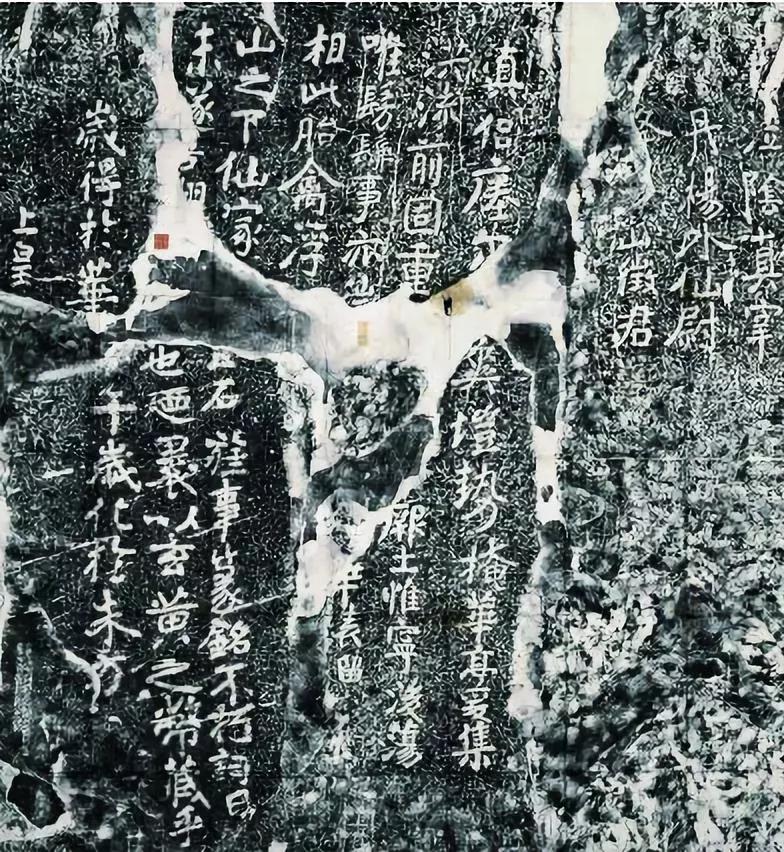 上皇
歲得於華 午歲化於朱方
未遂吾翔 也迺裹以玄黃之幣藏乎
山之下仙家 石旌事篆銘不朽詞曰
相此胎禽浮 華表留
唯髣髴事亦 厥土惟寧後蕩
洪流前固重 爽塏勢掩華亭爰集
真侶瘞尒
徵君
丹楊外仙尉
江陰真宰